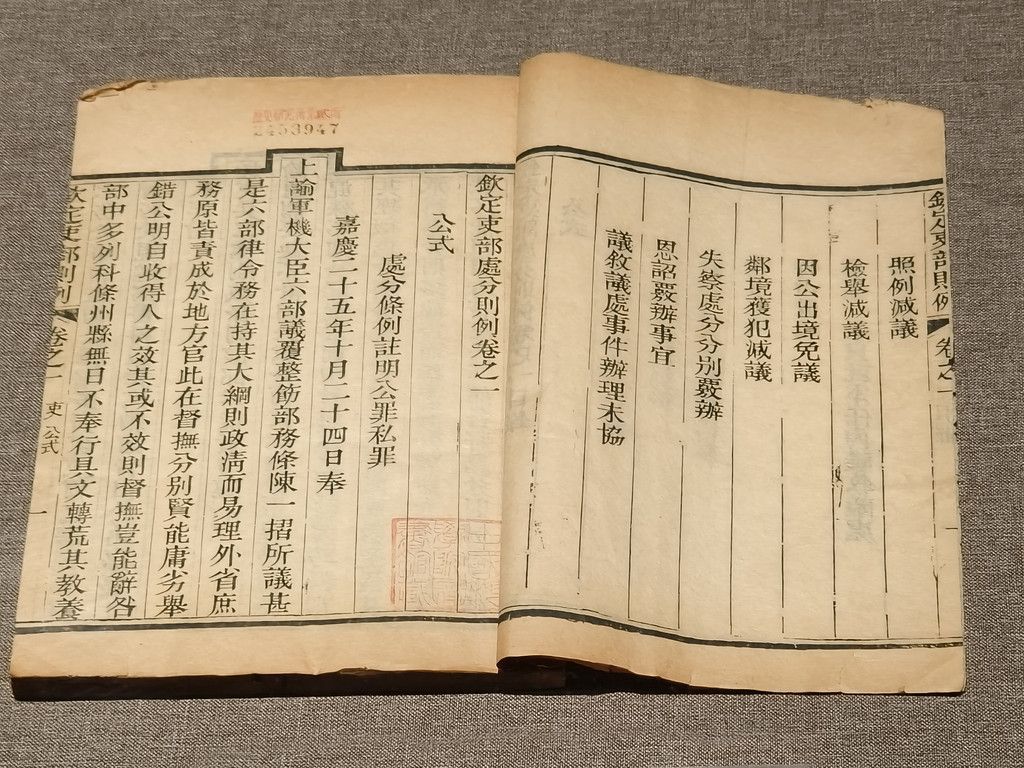 欽定吏部則例
卷之一
照例減議
檢舉減議
因公出境免議
鄰境獲犯減議
失察處分分別覈辦
恩詔覈辦事宜
議敘議處事件辦理未協
欽定吏部處分則例卷之一
公式
處分條例註明公罪私罪
嘉慶二十五年十月二十四日奉
上諭軍機大臣六部議覆整飭部務條陳一摺所議甚
是六部律令務在持其大綱則政淸而易理外省庶
務原皆責成於地方官此在督撫分別賢能庸劣舉
錯公明自收得人之效其或不效則督撫豈能辭咎
部中多列科條州縣無日不奉行具文轉荒其敎養
欽定吏部則例
卷之一
吏
公式
一
2453947